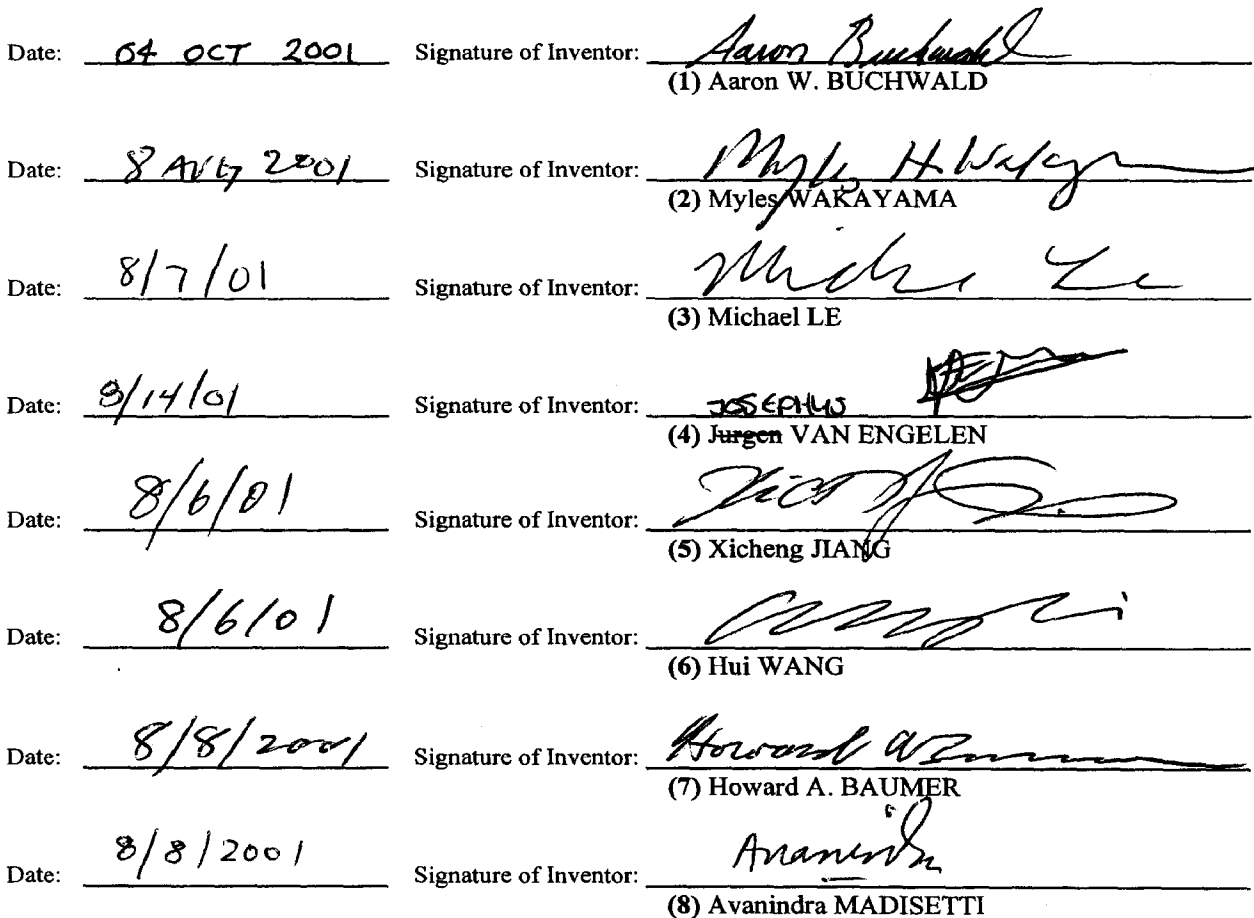 Date: 04 OCT 2001 Signature of Inventor: Aaron Buchwald
(1) Aaron W. BUCHWALD
Date: 8 AUG 2001 Signature of Inventor: Myles H. Wakayama
(2) Myles WAKAYAMA
Date: 8/7/01 Signature of Inventor: Michael Le
(3) Michael LE
Date: 8/14/01 Signature of Inventor: JOSEPHUS
(4) Jurgen VAN ENGELEN
Date: 8/6/01 Signature of Inventor:
(5) Xicheng JIANG
Date: 8/6/01 Signature of Inventor:
(6) Hui WANG
Date: 8/8/2001 Signature of Inventor: Howard A Baumer
(7) Howard A. BAUMER
Date: 8/8/2001 Signature of Inventor: Avanindra
(8) Avanindra MADISETTI